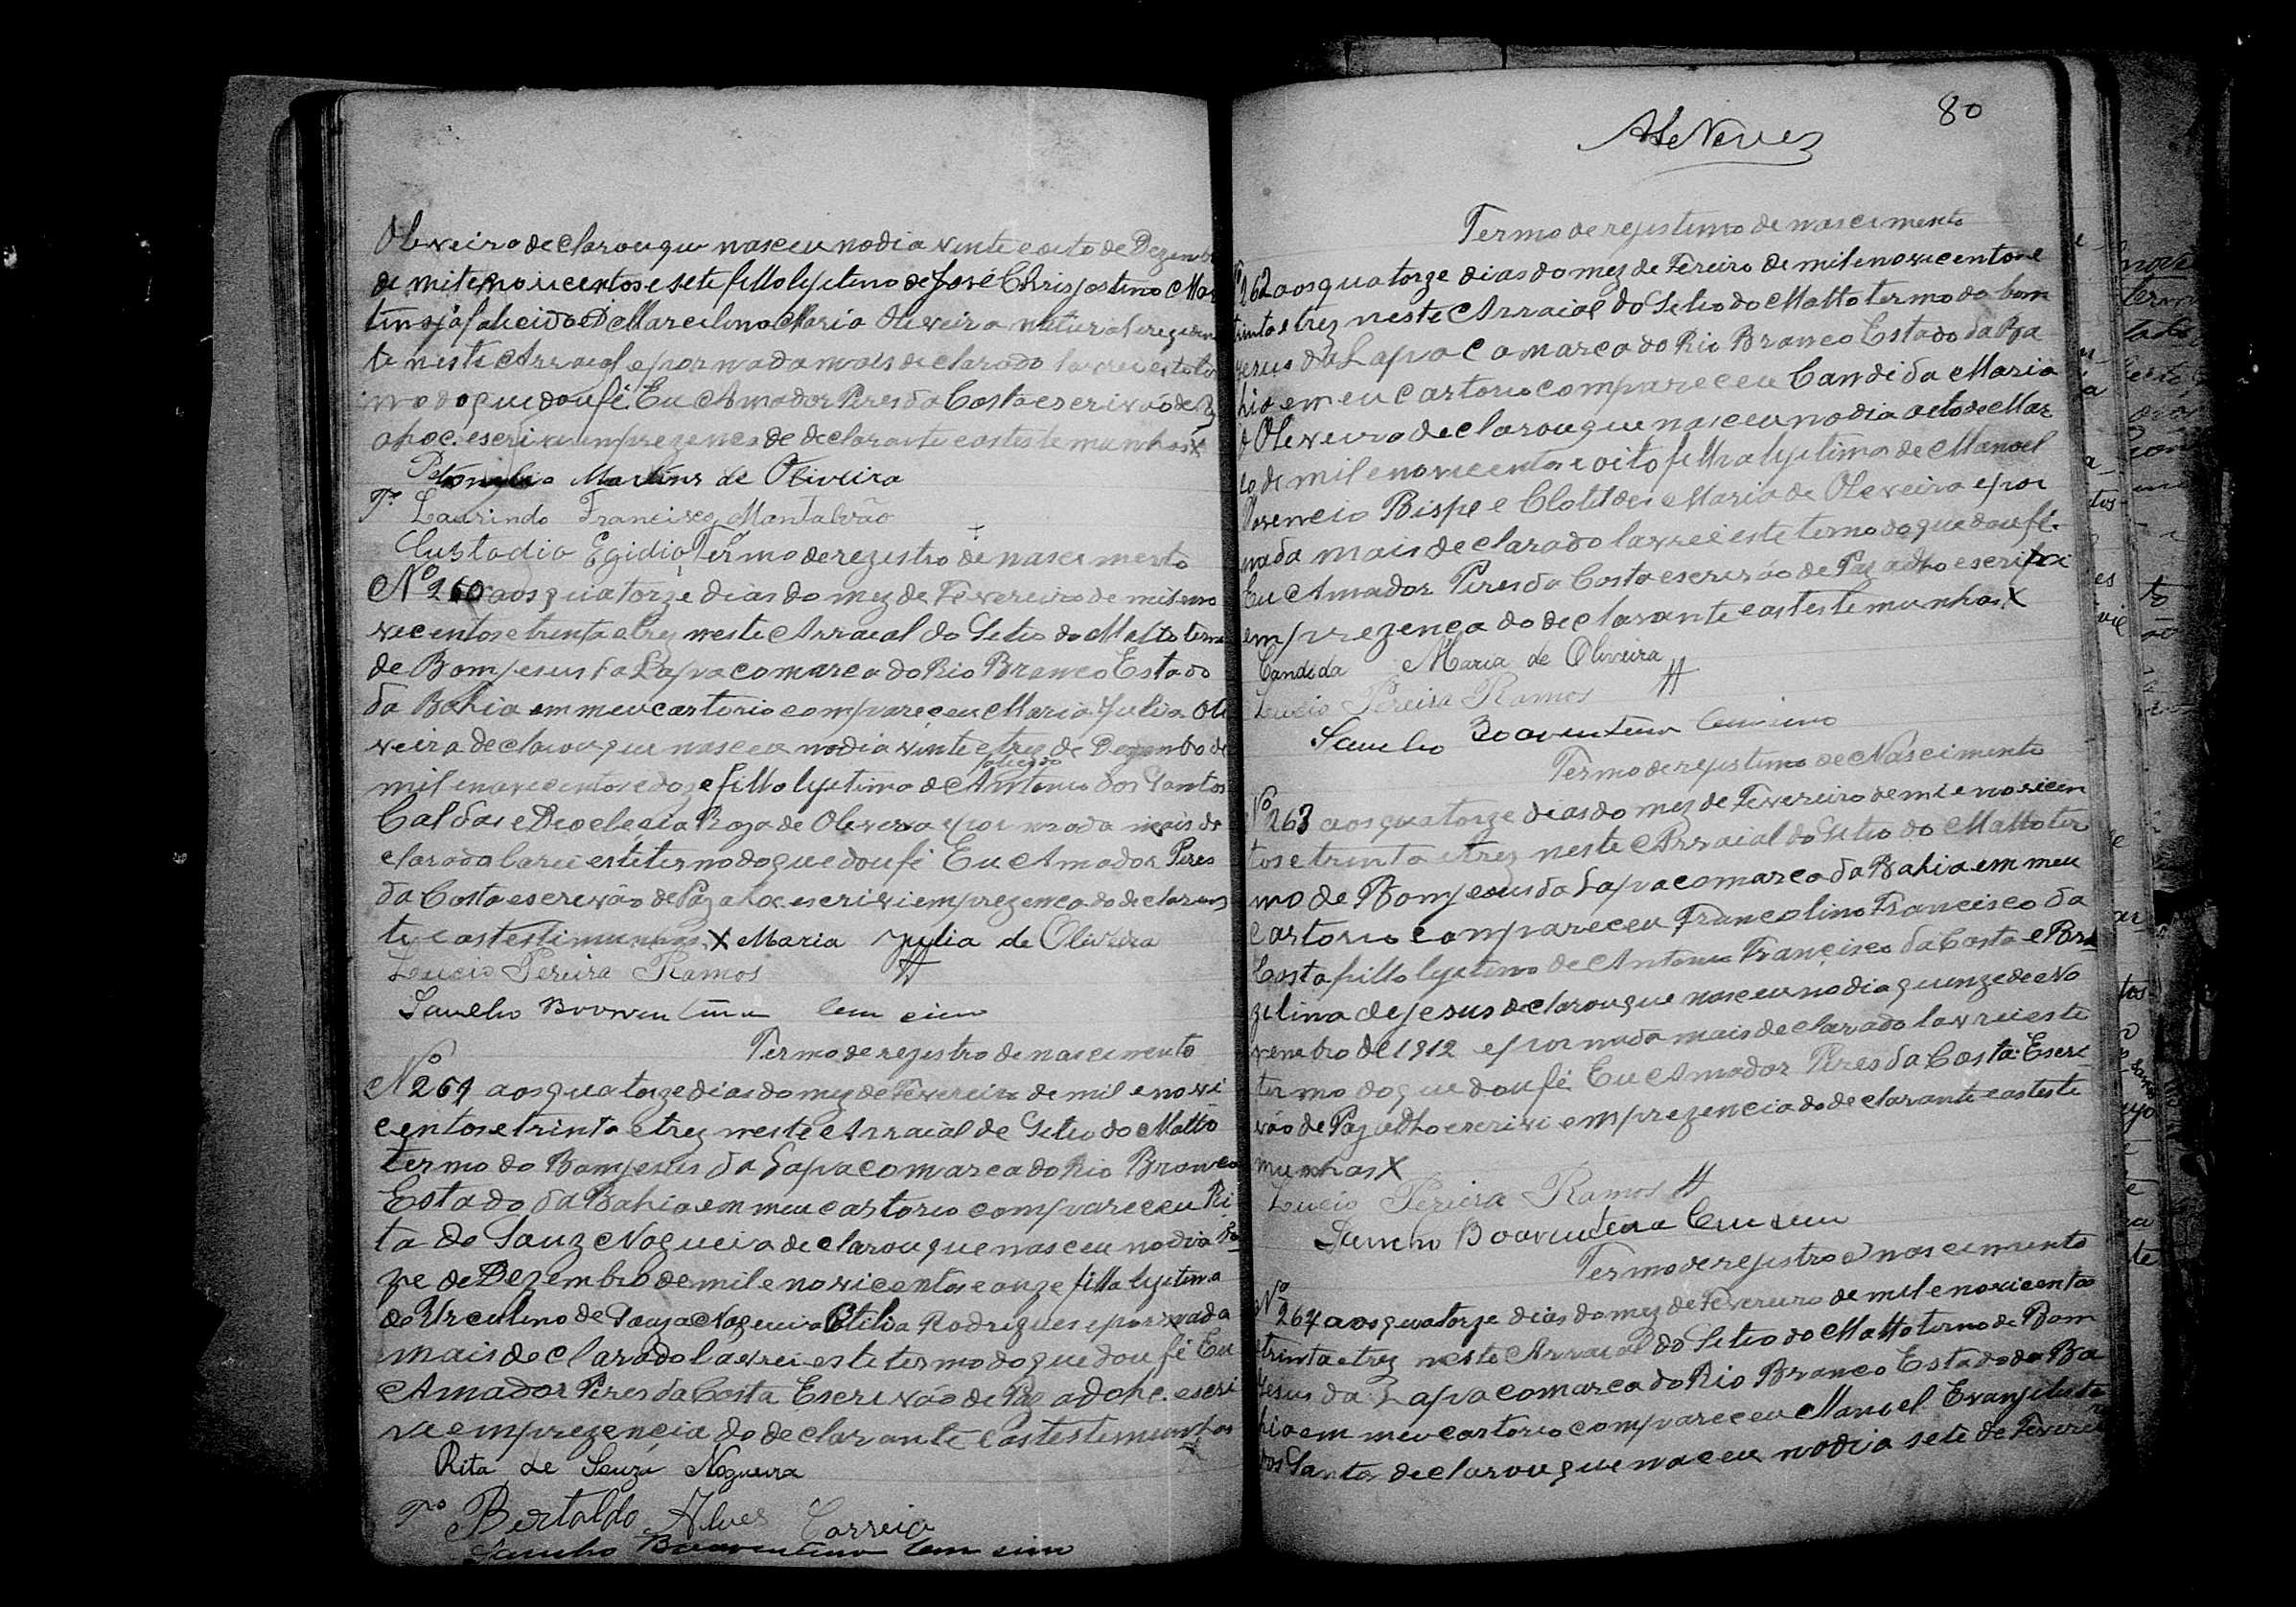 Oliveira declarou que nasceu no dia vinte e oito de Dezemb
de mil e novicentos e sete filho lijitimo de José Chrispostimo Mar
tins já falicido e D Marcilina Maria Oliveira natural rezeden
te neste Arraial e por nada mais declarado lavrei este ter
mo do que dou fé. Eu Amador Peres da Costa escrivão de Pz
ahoc. escrivi em prezenca de declarante e as testemunhas X
Martins de Oliveira
Ta Laurindo Francisco Montalvão
Custodio Egidio Termo de rezistro de nascimento
Nº 260 aos quatorze dias do mez de Fevereiro de mil no
vecentos e trinta e trez neste Arraial do Sitio do Matto termo
de Bom jesus da Lapa comarca do Rio Branco Estado
da Bahia em meu cartorio compareceu Maria Julia Oli
veira declarou que nasceu no dia vinte e trez de Dezembo de
falicido
mil e novecentos e doze filha lijitima de Antonio dos Santos
Caldas e Deoclecia Roza de Olivera e por nada mais de
clarado larei este termo do que dou fé Eu Amador Peres
da Costa escrivão de Paz ahoc escrivi em prezenca do declaran
te e as testimunhas X Maria Julia de Oliveira
Lucio Pereira Ramos
Sancho Boaventura
Termo de rezistro de nascimento
Nº 261 aos quatorze dias do mez de Fevereiro de mil e novi
centos e trinta e trez neste Arraial de Sitio do Matto
termo do Bom jesus da Lapa comarca do Rio Branco
Estado da Bahia em meu cartorio compareceu Ri
ta de Souz Nogueira declarou que nasceu no dia do
ze de Dezembro de mil e novicentos e onze filha lijitima
de Urculino de Souza Nogueira Otilia Rodrigues e por nada
mais declarado lavrei este termo do que dou fé Eu
Amador Peres da Costa Escrivão de Paz adohc. escri
ve em prezencia do declarante e as testemunhas
Rita de Souza Nogueira
Ta Bertoldo Alves Correia
Sancho Boaventura
80
Termo de rejistimo de nascimento
Nº 262 aos quatorze dias do mez de Fereiro de mil e novecentos e
trinta e trez neste Arraial do Sitio do Matto termo do bom
jesus da Lapa Comarca do Rio Branco Estado da Ba
hia em eu cartorio compareceu Candida Maria
d Oliveira declarou que nasceu no dia oito de Mar
co de mil e novecentos e oito filha lijitima de Manoel
Bispe e Clotildes Maria de Oleveira e por
nada mais declarado lavrei este termo do que dou fé.
Eu Amador Peres da Costa escrivão de Paz adho escrivi
em prezenca do declarante e as testemunhas X
Candida Maria de Oliveira
Lucio Pereira Ramos
Sancho Boaventura
Termo de rejistimo de Nascimento
Nº 263 aos quatorze dias do mez de Fevereiro de mi e novicen
tos e trinta e trez neste Arraial do Sitio do Matto ter
mo de Bom jesus da Lapa comarca da Bahia em meu
cartorio compareceu Francolino Francisco da
Costa filho lijitimo de Antonio Francisco da Costa e Bra
zilina de jesus declarou que nasceu no dia quinze de No
venebro de 1912 e por nada mais declarado lavrei este
termo do que dou fé Eu Amador Peres da Costa Escri
vão de Paz adho escrivi em prezencia do declarante e as teste
munhas X
Lucio Pereira Ramos
Sancho Boaventura
Termo de rejistro d nascimento
Nº 264 aos quatorze dias do mez de Fevereiro de mil e novicentos
e trinta e trez neste Arraial do Sitio do Matto termo de Bom
Jesus da Lapa comarca do Rio Branco Estado da Ba
hia em meu cartorio compareceu Manoel Evanjelista
dos Santos declarou que naceu no dia sete de Feverei